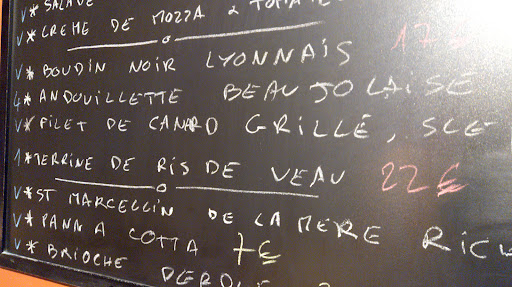 V* SALADE
V* CREME DE MOZZA & TOMATE
V* BOUDIN NOIR LYONNAIS 17
4* ANDOUILLETTE BEAUJOLAISE
V* FILET DE CANARD GRILLÉ, SCE
1* TERRINE DE RIS DE VEAU 22€
V* ST MARCELLIN DE LA MERE RICH
V* PANNA COTTA 7€
V* BRIOCHE PERDUE